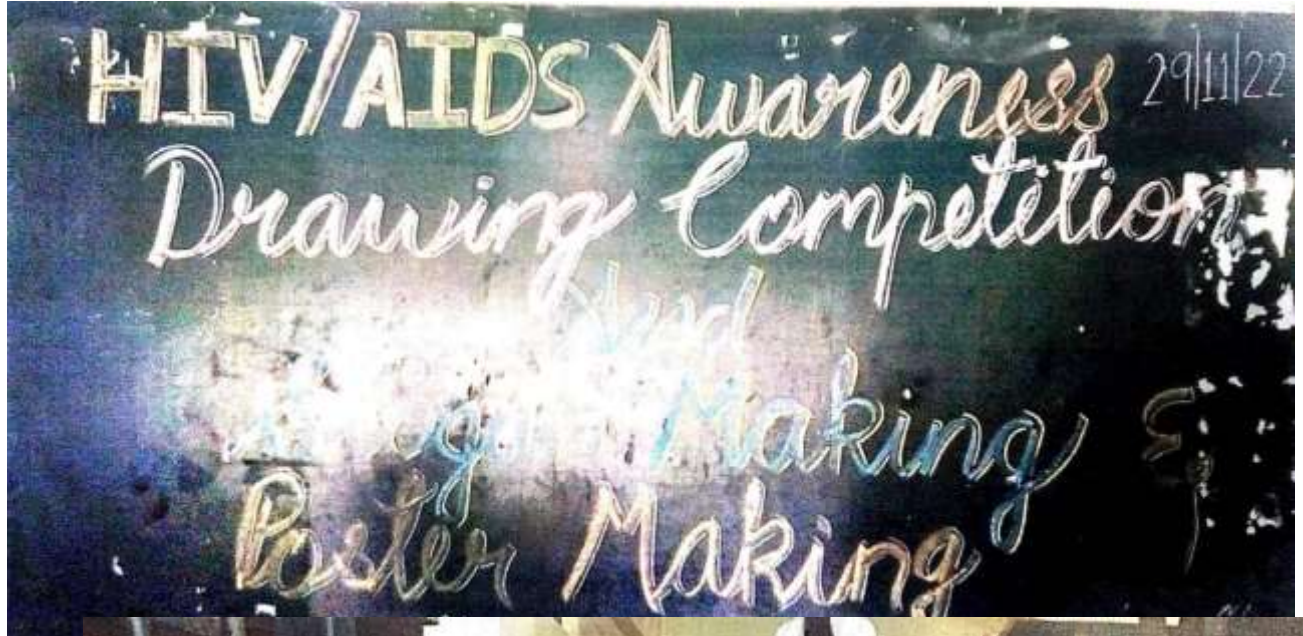 HIV/AIDS Awareness 29/11/22
Drawing Competition
And
Making &
Poster Making